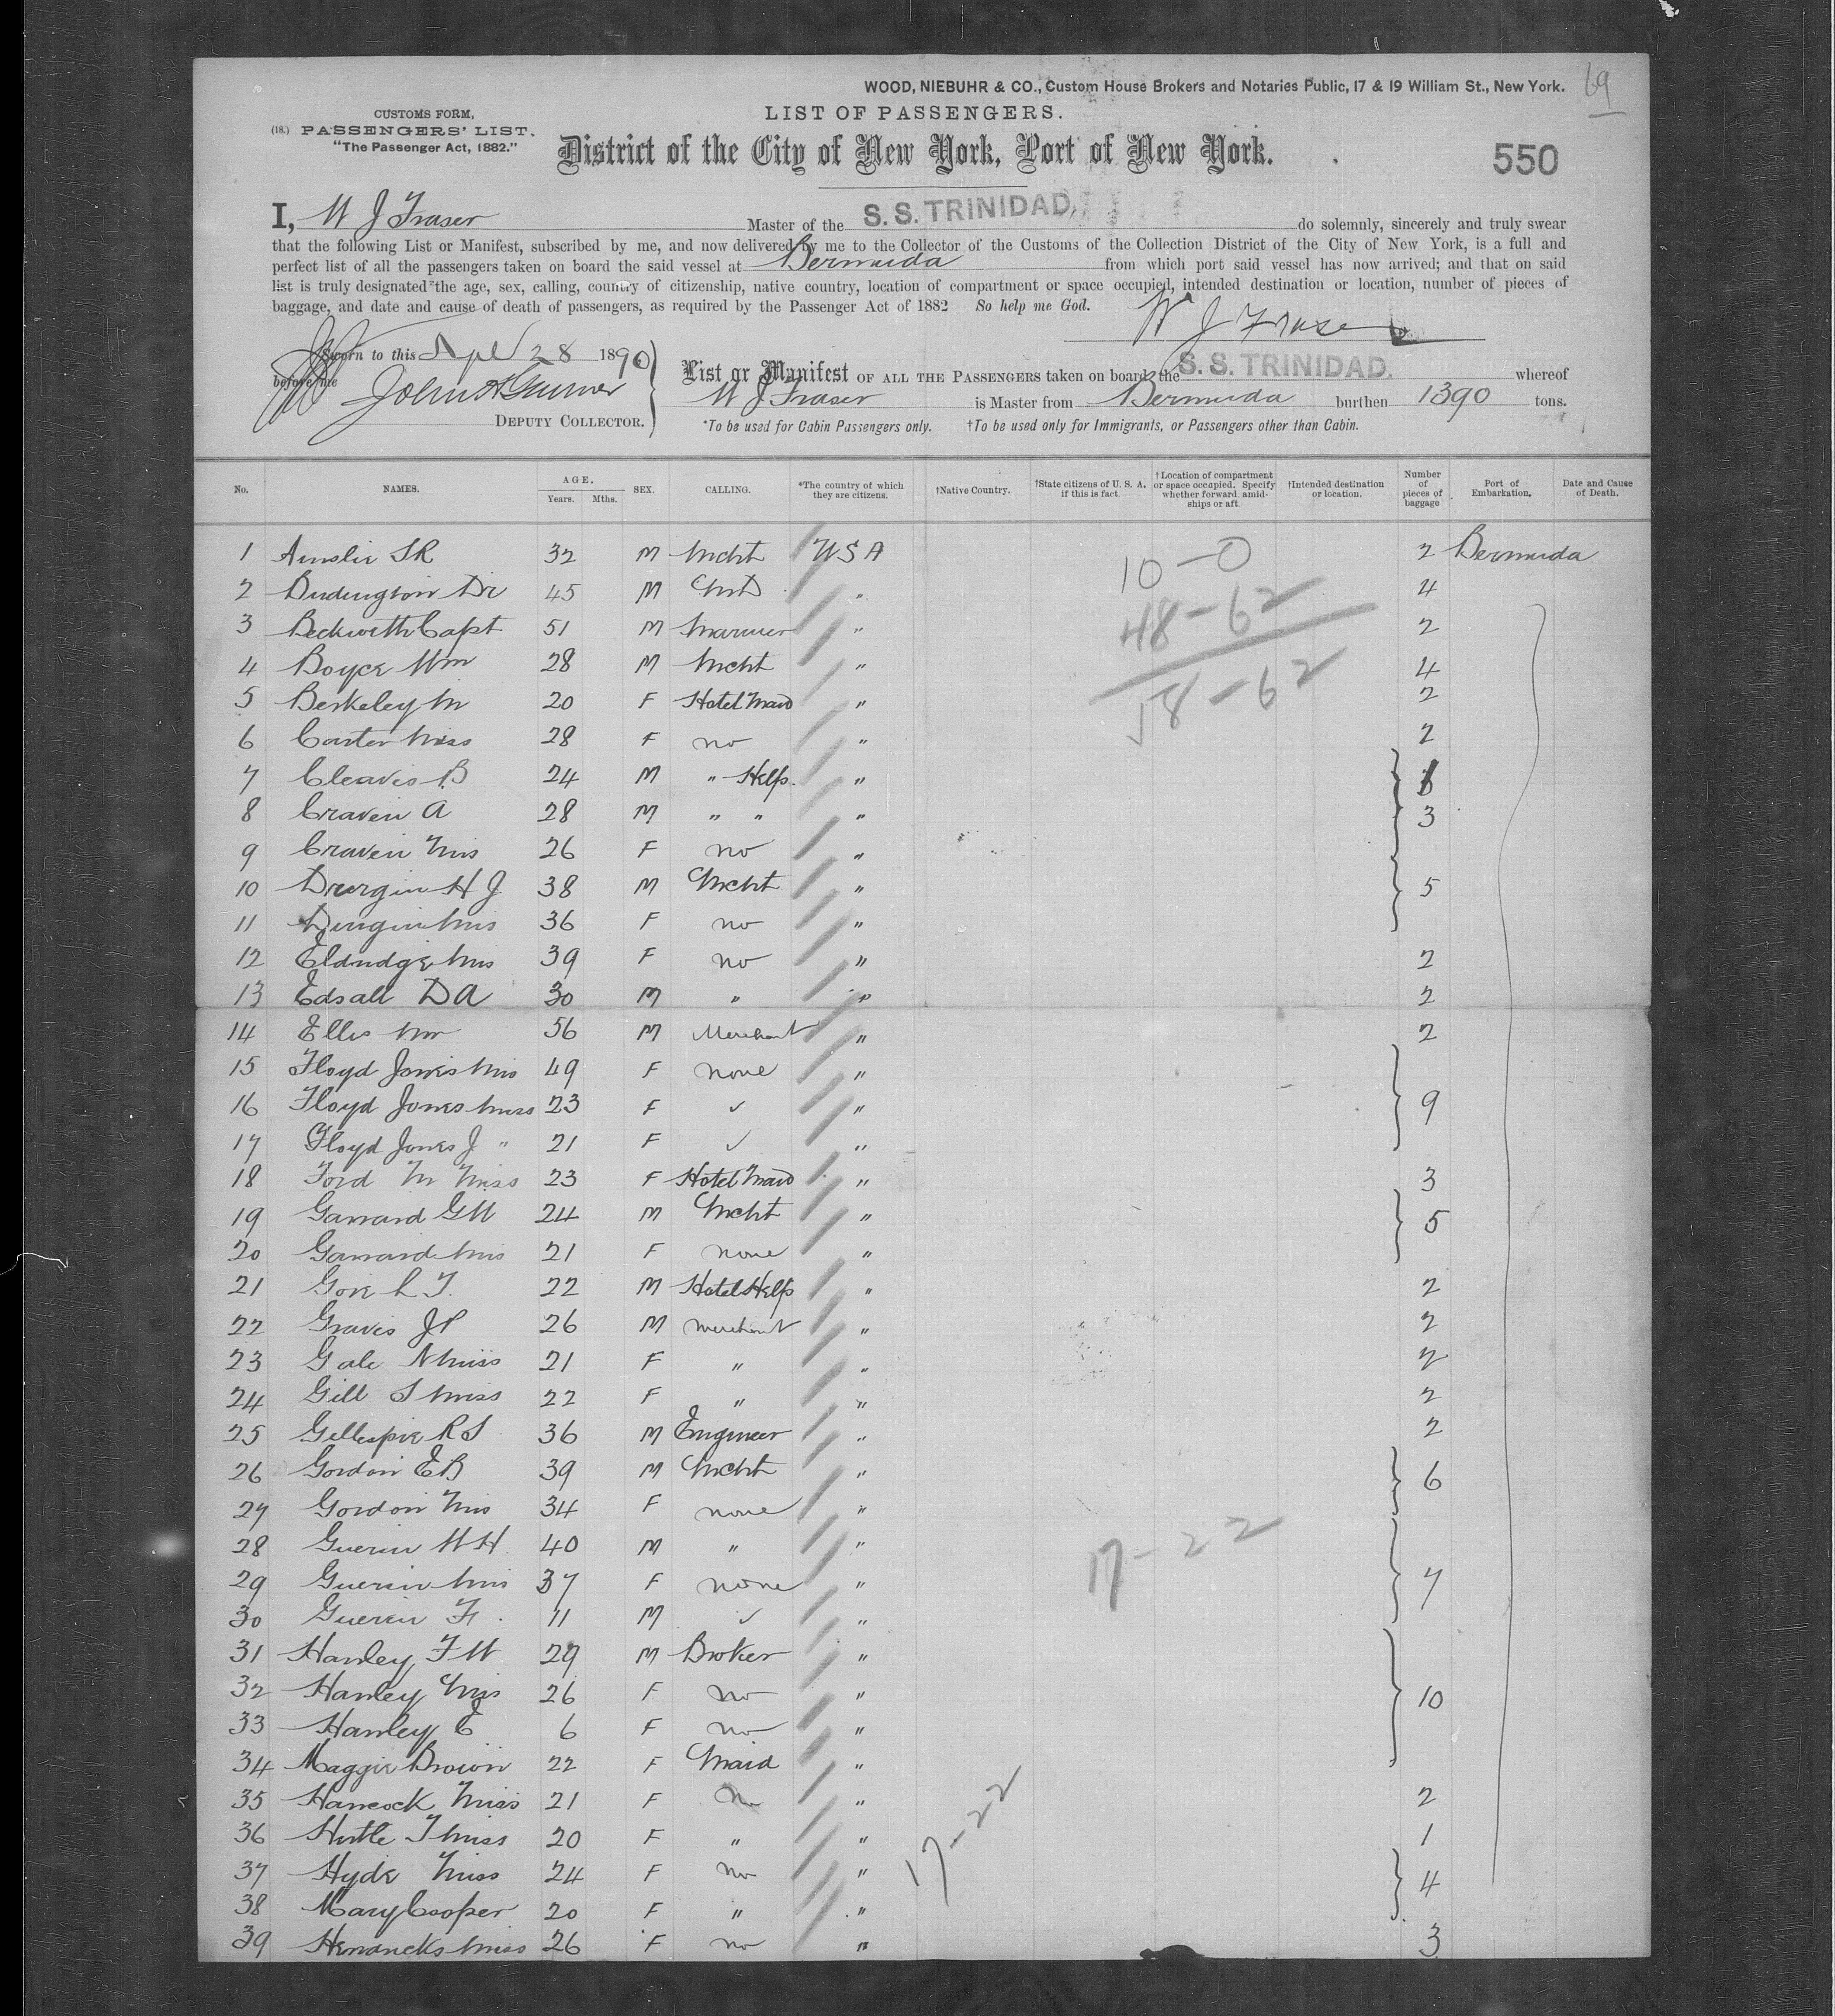 WOOD, NIEBUHR & CO., Custom House Brokers and Notaries Public, 17 & 19 William St., New York. 69
CUSTOMS FORM, LIST OF PASSENGERS.
(18.) PASSENGERS' LIST.
"The Passenger Act, 1882." District of the City of New York, Port of New York. 550
I, W J Fraser Master of the S. S. TRINIDAD, do solemnly, sincerely and truly swear
that the following List or Manifest, subscribed by me, and now delivered by me to the Collector of the Customs of the Collection District of the City of New York, is a full and
perfect list of all the passengers taken on board the said vessel at Bermuda from which port said vessel has now arrived; and that on said
list is truly designated the age, sex, calling, country of citizenship, native country, location of compartment or space occupied, intended destination or location, number of pieces of
baggage, and date and cause of death of passengers, as required by the Passenger Act of 1882 So help me God. W J Fraser
Sworn to this Apl 28 1890
before me
DEPUTY COLLECTOR.
List or Manifest OF ALL THE PASSENGERS taken on board the S. S. TRINIDAD. whereof
W J Fraser is Master from Bermuda burthen 1390 tons.
*To be used for Cabin Passengers only. †To be used only for Immigrants, or Passengers other than Cabin.
No. NAMES. AGE. Years. Mths. SEX. CALLING. *The country of which they are citizens. †Native Country. †State citizens of U. S. A. if this is fact. †Location of compartment or space occupied. Specify whether forward, amidships or aft. †Intended destination or location. Number of pieces of baggage Port of Embarkation. Date and Cause of Death.
1 Ainslie S R 32 M Mcht U S A 10-0 2 Bermuda
2 Dr 45 M " 48-62 4
3 Beckwith Capt 51 M Mariner " 2
4 Boyce Wm 28 M Mcht " 58-62 4
5 Berkeley M 20 F Hotel Maid " 2
6 Carter Miss 28 F no " 2
7 Cleaves B 24 M " Help "
8 Craven A 28 M " " " 3
9 Craven Mrs 26 F no "
10 Durgin H J 38 M Mcht " 5
11 Durgin Mrs 36 F no "
12 Eldridge Mrs 39 F no " 2
13 Edsall D A 30 M " " 2
14 Ellis Wm 56 M Merchant " 2
15 Floyd Jones Mrs 49 F none "
16 Floyd Jones Miss 23 F ✓ " 9
17 Floyd Jones J " 21 F ✓ "
18 Ford M Miss 23 F Hotel Maid " 3
19 Garrard G W 24 M Mcht " 5
20 Garrard Mrs 21 F none "
21 Gore L T. 22 M Hotel Help " 2
22 Graves J P 26 M merchant " 2
23 Gale N Miss 21 F " " 2
24 Gill S Miss 22 F " " 2
25 Gillespie R S 36 M Engineer " 2
26 Gordon E B 39 M Mcht " 6
27 Gordon Mrs 34 F none "
28 Guerin W H 40 M " " 17-22
29 Guerin Mrs 37 F none " 7
30 Guerin F 11 M ✓ "
31 Hanley F W 29 M Broker "
32 Hanley Mrs 26 F no " 10
33 Hanley E 6 F no "
34 Maggie Brown 22 F Maid "
35 Hancock Miss 21 F no " 2
36 Miss 20 F " " 17-22 1
37 Hyde Miss 24 F no " 4
38 Mary Cooper 20 F " "
39 Hendricks Miss 26 F no " 3